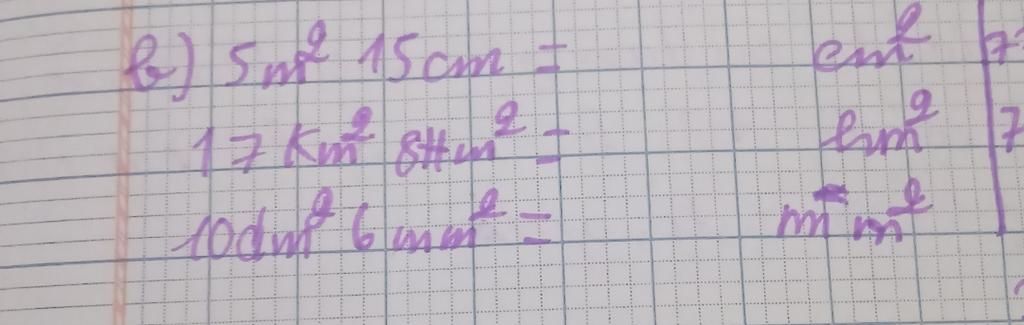 b) 5m² 15cm = cm² 7
17 Km² 8Hm² = hm² 7
10dm² 6 mm² = mm²